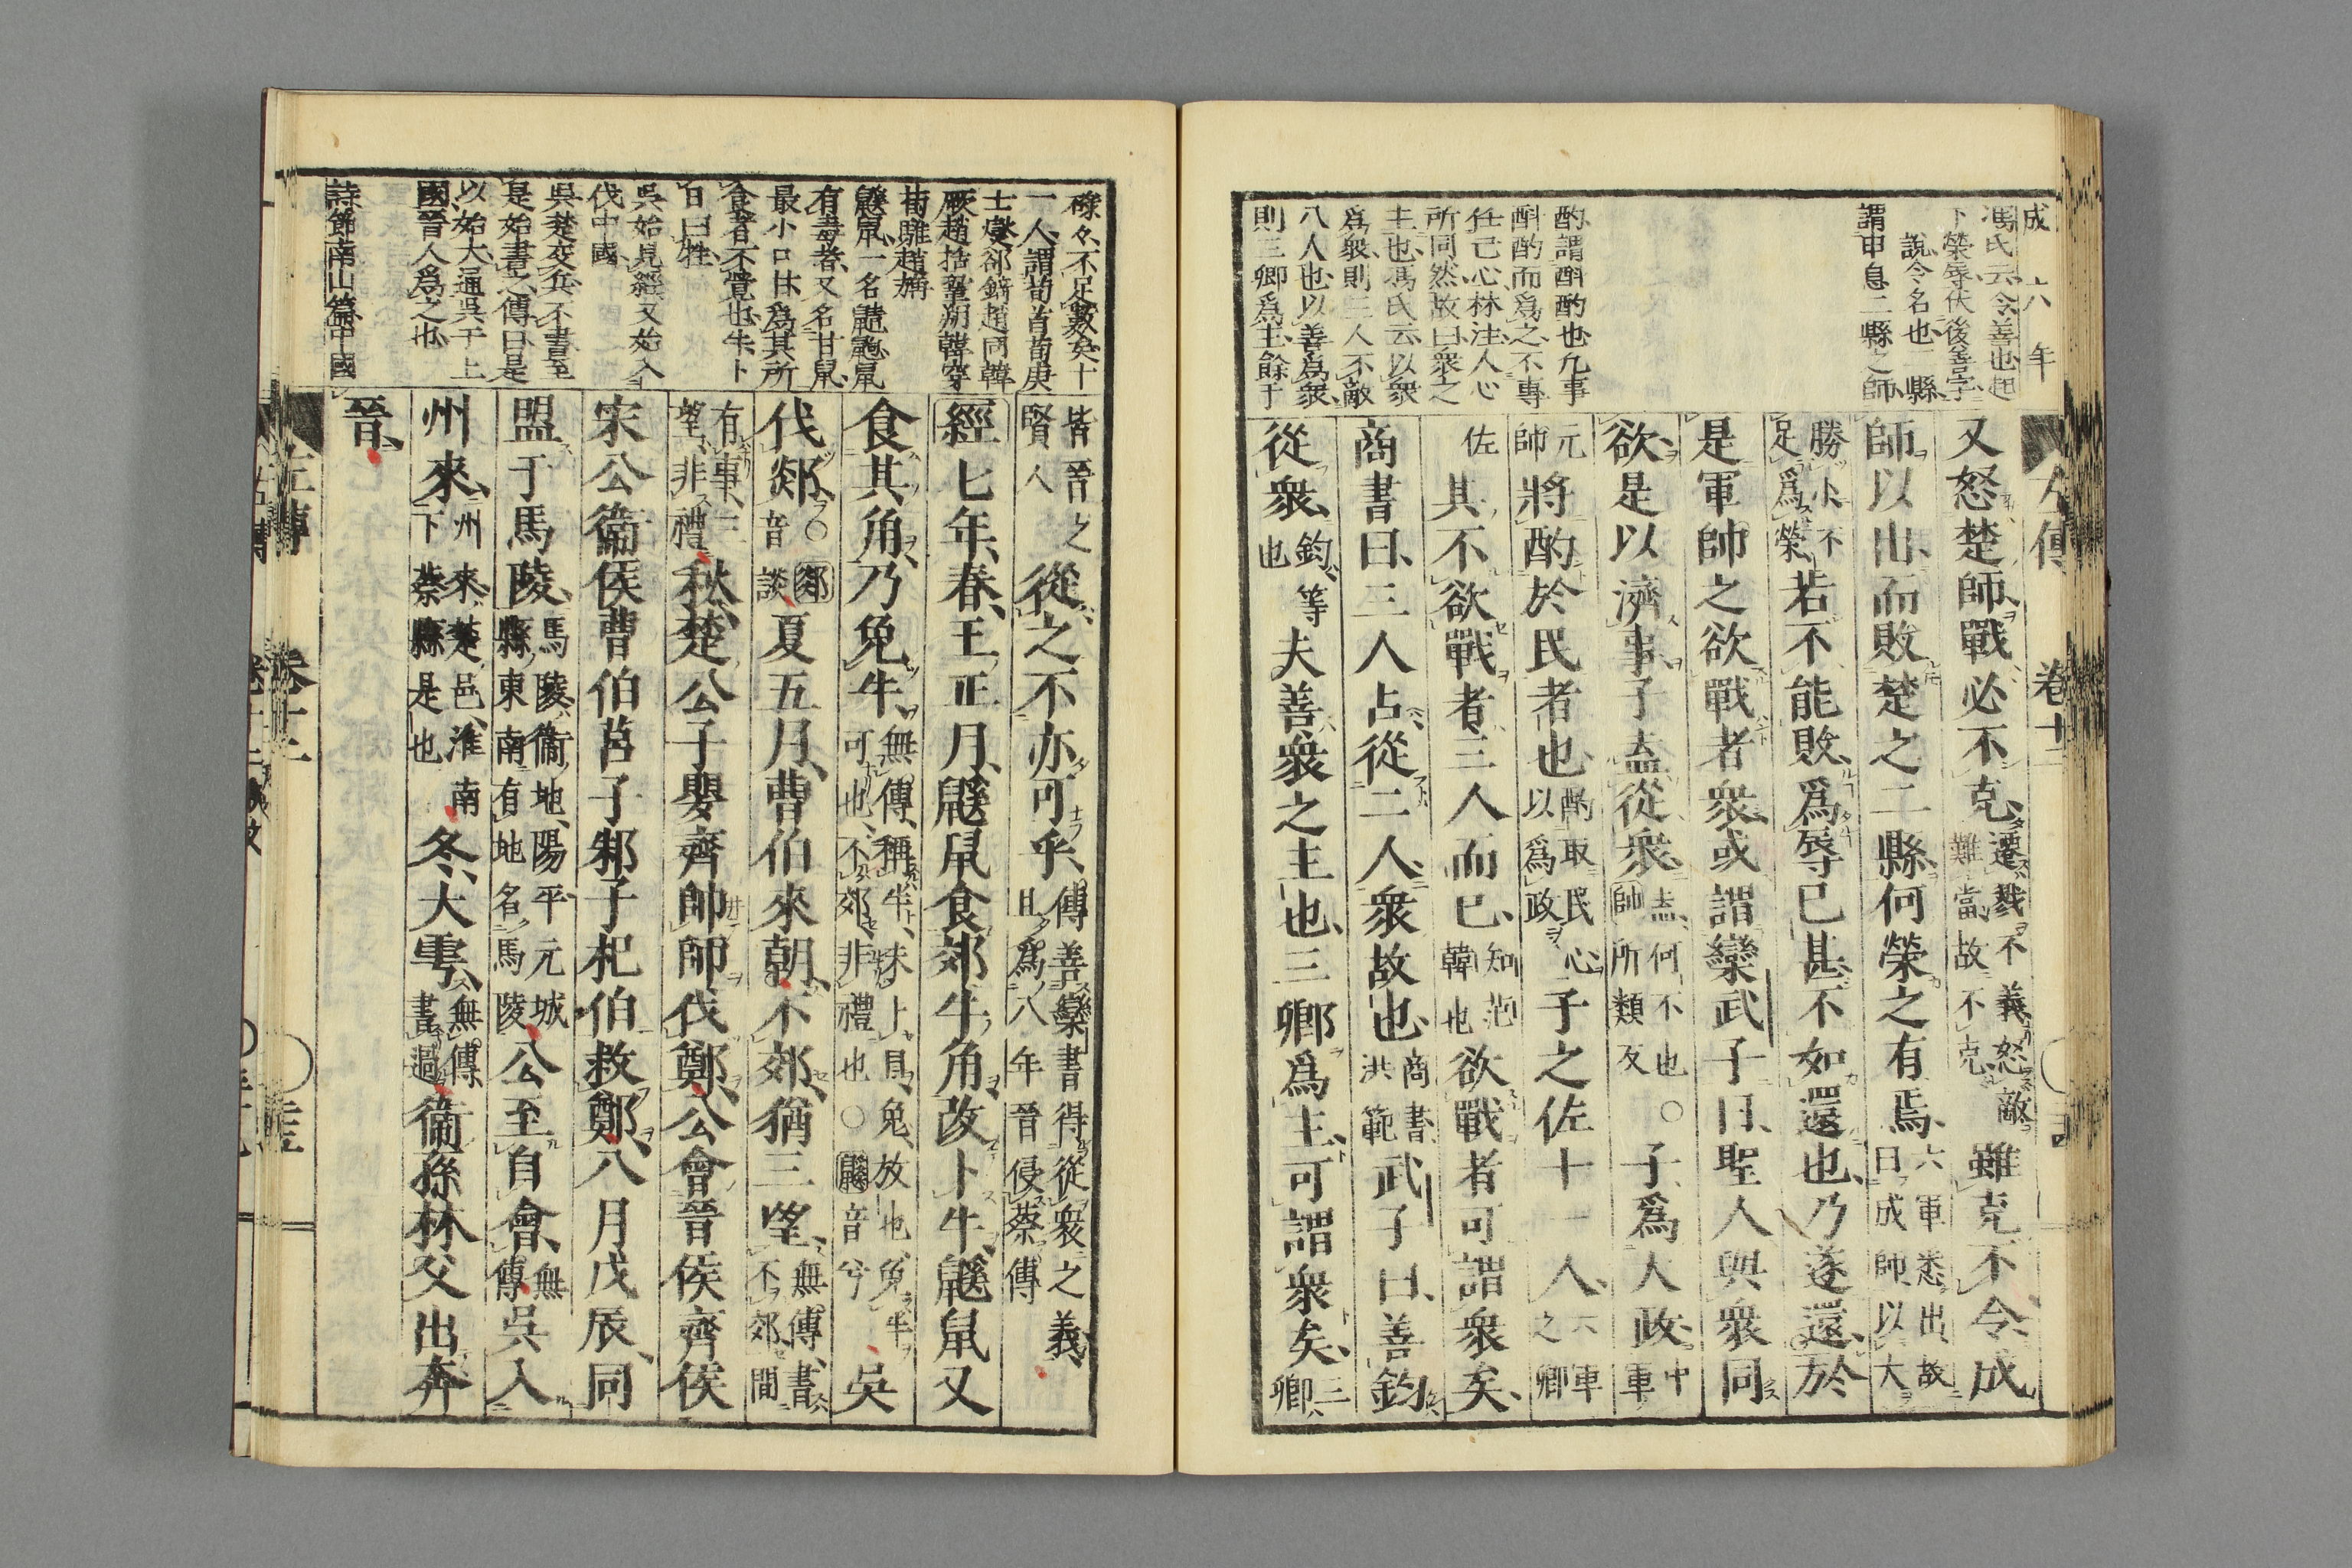 成六年
馮氏云令善也起
下榮辱伏後善字
說令名也二縣
謂申息二縣之師
酌謂酙酌也凡事
酙酌而爲之不專
任己心林注人心
所同然故曰衆之
主也馮氏云以衆
爲衆則三人不敵
八人也以善爲衆
則三卿爲主餘于
左傳 卷十二
又怒楚師戰必不克遷戮不義怒敵難當故不克雖克不令成
師以出而敗楚之二縣何榮之有焉六軍悉出故曰成師以大
勝小不足爲榮若不能敗爲辱已甚不如還也乃遂還於
是軍帥之欲戰者衆或謂欒武子曰聖人與衆同
欲是以濟事子盍從衆盍何不也帥所類反○子爲大政中軍
元帥將酌於民者也酌取民心以爲政子之佐十一人六軍之卿
佐其不欲戰者三人而已知范韓也欲戰者可謂衆矣
商書曰三人占從二人衆故也商書洪範武子曰善鈞
從衆鈞等也夫善衆之主也三卿爲主可謂衆矣三卿
㯟々不足數矣十
一人謂荀首荀庚
士燮郤錡趙同韓
厥趙括鞏朔韓穿
荀騅趙旃
鼷鼠一名䶅鼠
有毒者又名甘鼠
最小口甘爲其所
食者不覺也牛卜
日曰牲
吳始見經又始入
伐中國
吳楚交兵不書至
是始書之傳曰是
以始大通吳于上
國晉人爲之也
詩節南山篇中國
皆晉之賢人從之不亦可乎傳善欒書得從衆之義且爲八年晉侵蔡傳
經七年春王正月鼷鼠食郊牛角改卜牛鼷鼠又
食其角乃免牛無傳稱牛未卜日免放也免牛可也不郊非禮也○鼷音兮吳
伐郯○郯音談夏五月曹伯來朝不郊猶三望無傳書不郊間
有事三望非禮秋楚公子嬰齊帥師伐鄭公會晉侯齊侯
宋公衞侯曹伯莒子邾子杞伯救鄭八月戊辰同
盟于馬陵馬陵衞地陽平元城縣東南有地名馬陵公至自會無傳吳入
州來州來楚邑淮南下蔡縣是也冬大雩無傳書過衞孫林父出奔
晉
左傳 卷十二